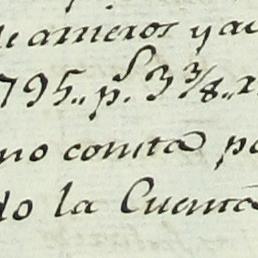 de arrieros y ac
795,, p.s 3 3/8,, r
mo consta po
do la Cuenta